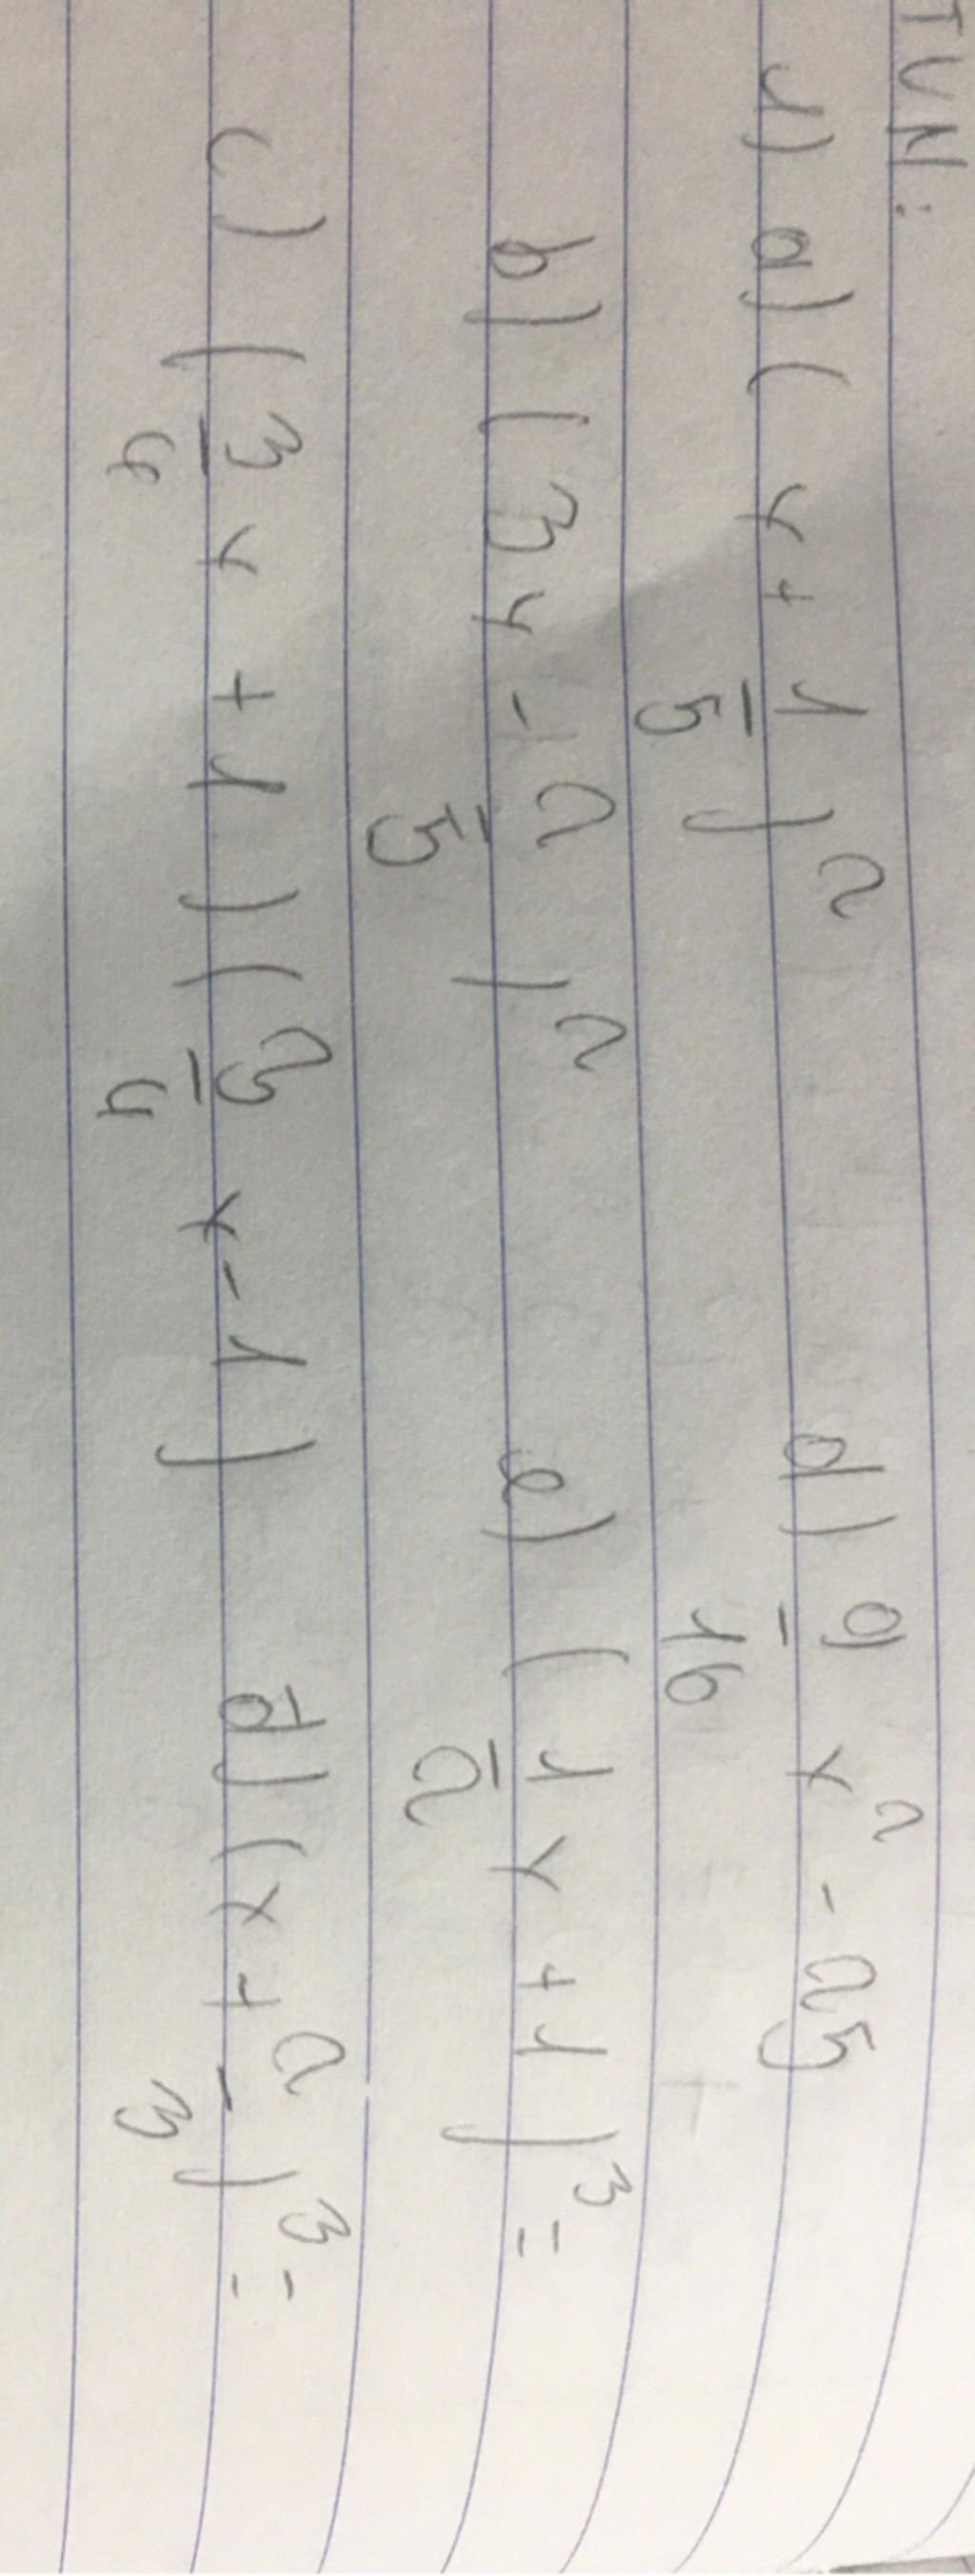 TVN:
1) a) (x + 1/5)² d) 9/16 x² - 25
b) (3y - 2/5)² e) (1/2 x + 1)³ =
c) (3/4 x + 1)(3/4 x - 1) đ) (x + 2/3)³ =